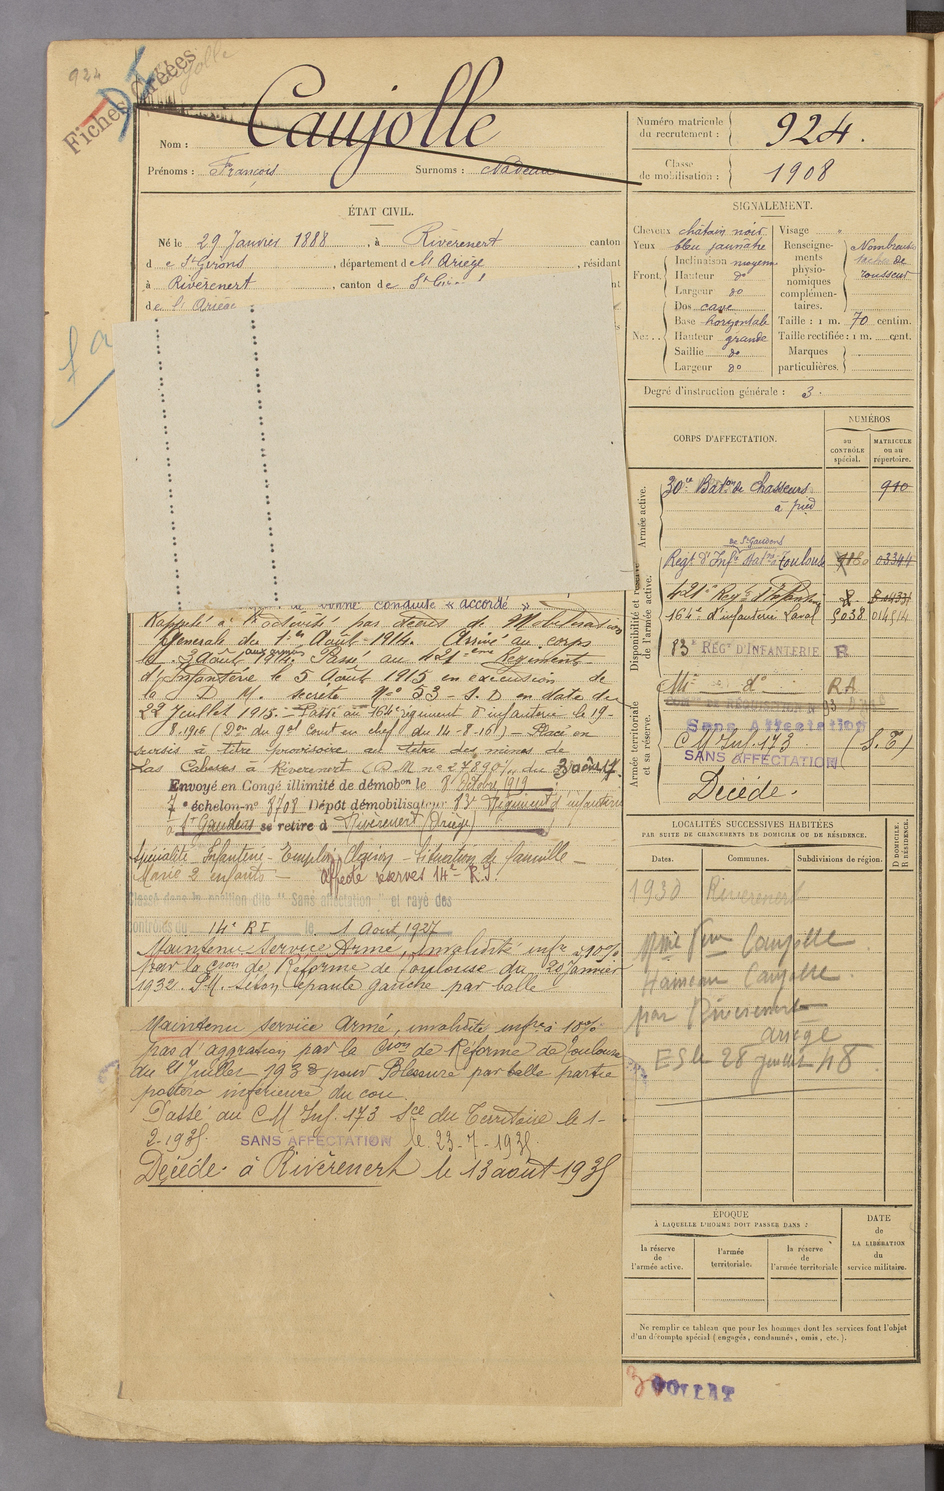 924
Fiches Créées
Nom : Caujolle
Prénoms : François Surnoms : Nadeau
Numéro matricule du recrutement : 924.
Classe de mobilisation : 1908
ÉTAT CIVIL.
Né le 29 Janvier 1888, à Rivèrenert canton
de St Girons, département de l'Ariège, résidant
à Rivèrenert, canton de St Giro
de l'Ariège
SIGNALEMENT.
Cheveux châtain noir
Yeux bleu jaunâtre
Front. Inclinaison moyenne
Hauteur do
Largeur do
Nez. Dos cave
Base horizontale
Hauteur grande
Saillie do
Largeur do
Visage
Renseignements physionomiques complémentaires. Nombreuses taches de rousseur
Taille : 1 m. 70 centim.
Taille rectifiée : 1 m. cent.
Marques particulières.
Degré d'instruction générale : 3.
CORPS D'AFFECTATION.
NUMÉROS
au CONTRÔLE spécial.
MATRICULE ou au répertoire.
Armée active.
30e Baton de Chasseurs à pied 910
Disponibilité et réserve de l'armée active.
de St Gaudens
Regt d'Infie Toulouse 03344
421e Regt d'Infanterie
164e d'infanterie Laval 5038 014514
83e RÉGt D'INFANTERIE R
Mi do RA
Armée territoriale et sa réserve.
Sans Affectation
C M Inf. 173 (S.T)
SANS AFFECTATION
Décédé.
de bonne conduite « accordé »
Rappelé à l'activité par décret de Mobilisation
Générale du 1er Août 1914. Arrivé au corps
le 3 Août 1914. Passé au 421ème Régiment
aux armées
d'Infanterie le 5 Août 1915 en exécution de
la D. M. secrète No 33 - S. D en date du
22 Juillet 1915. Passé au 164e régiment d'infanterie le 19-
8-1916 (Don du gal Comt en chef du 14-8-16) - Placé en
sursis à titre provisoire au titre des mines de
Las Cabesses à Rivèrenert (D M no 27890 du 3 août 17.
Envoyé en Congé illimité de démobon le 8 Octobre 1919
7e échelon-no 8708 Dépôt démobilisateur 83e Régiment d'infanterie
à St Gaudens se retire à Rivèrenert (Ariège)
Spécialité Infanterie - Emploi - Situation de famille -
Marié 2 enfants - Affecté réserves 14e R.I.
Classé dans la position dite "Sans affectation" et rayé des
contrôles du 14e RI le 1 Août 1927
Maintenu Service Armé, invalidité infre 10%
par la Cion de Réforme de Toulouse du 20 Janvier
1932. P.M. Séton épaule gauche par balle
Maintenu service Armé, invalidité infre à 10%
pas d'aggration par la Cion de Réforme de Toulouse
du 21 Juillet 1938 pour Blessure par balle partie
postéro inférieure du cou.
Passé au C M Inf. 173 Sce du Territoire le 1-
2-1935. SANS AFFECTATION le 23-7-1935.
Décédé à Rivèrenert le 13 août 1935
LOCALITÉS SUCCESSIVES HABITÉES
PAR SUITE DE CHANGEMENTS DE DOMICILE OU DE RÉSIDENCE.
Dates. Communes. Subdivisions de région. D DOMICILE. R RÉSIDENCE.
1930 Riverenert
Mme Vve Caujolle
Hameau Caujolle
par Riverenert
ariège
ES le 28 juillet 48
ÉPOQUE
À LAQUELLE L'HOMME DOIT PASSER DANS :
la réserve de l'armée active.
l'armée territoriale.
la réserve de l'armée territoriale
DATE de LA LIBÉRATION du service militaire.
Ne remplir ce tableau que pour les hommes dont les services font l'objet
d'un décompte spécial (engagés, condamnés, omis, etc.).